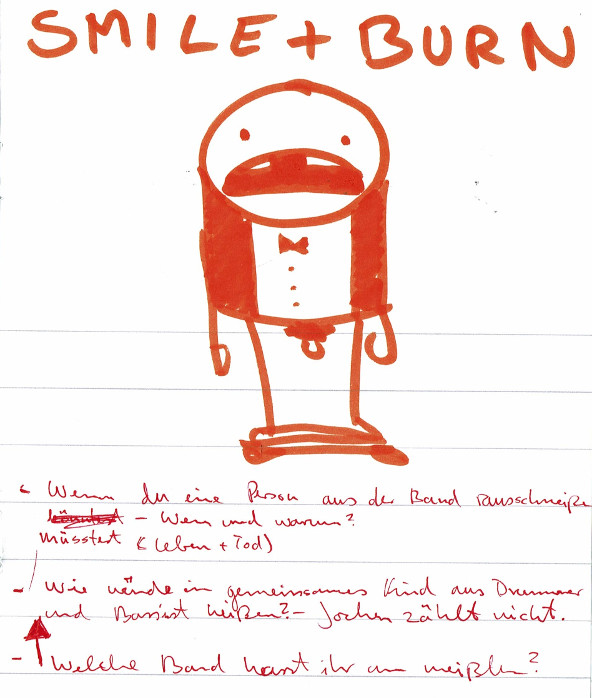 SMILE + BURN
- Wenn du eine Person aus der Band rausschmeiße
- Wen und warum?
müsstest (Leben + Tod)
- Wie würde ein gemeinsames Kind aus Drummer
und Bassist heißen? - Jochen zählt nicht.
- Welche Band hasst ihr am meisten?